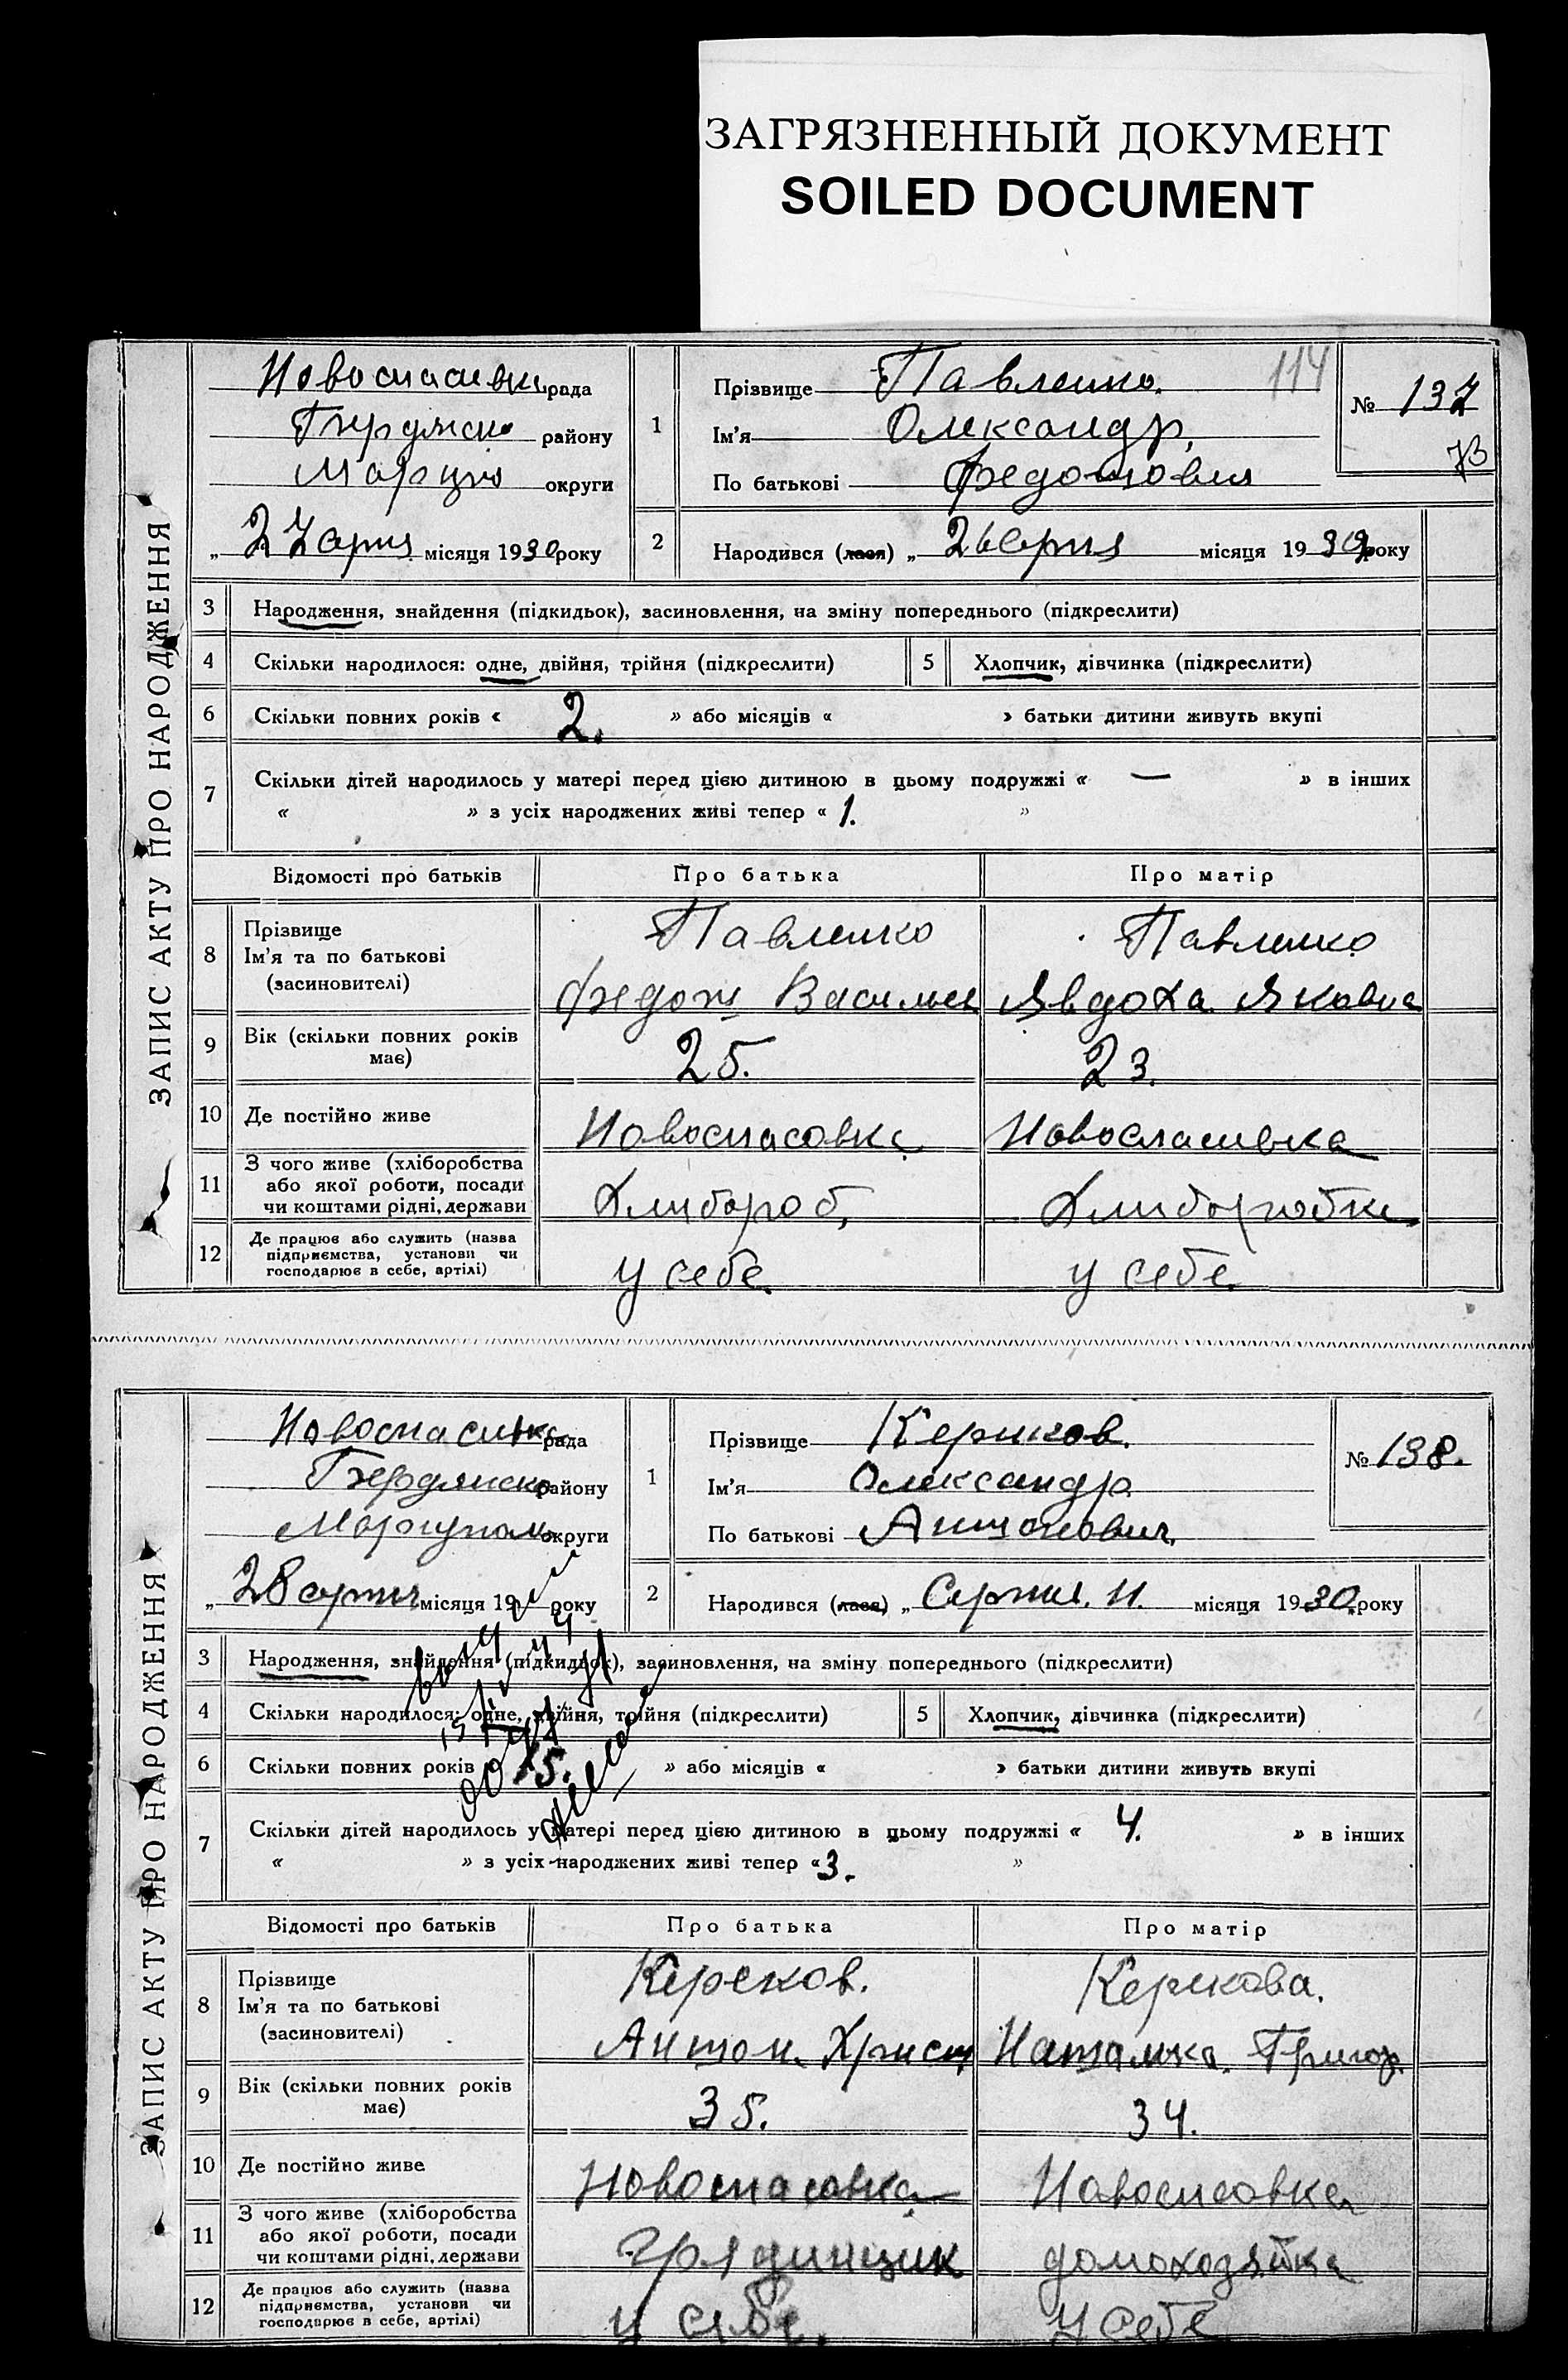 ЗАГРЯЗНЕННЫЙ ДОКУМЕНТ
SOILED DOCUMENT
ЗАПИС АКТУ ПРО НАРОДЖЕННЯ
рада
району
округи
„ 27 серпня місяця 1930 року
1
Прізвище Павленко.
114
Ім'я Олександр,
По батькові Федотович
№ 137
2
Народився (лася) „ 26 серпня місяця 1930 року
3 Народження, знайдення (підкидьок), засиновлення, на зміну попереднього (підкреслити)
4 Скільки народилося: одне, двійня, трійня (підкреслити)
5 Хлопчик, дівчинка (підкреслити)
6 Скільки повних років « 2. » або місяців « » батьки дитини живуть вкупі
7 Скільки дітей народилось у матері перед цією дитиною в цьому подружжі « — » в інших
« » з усіх народжених живі тепер « 1. »
Відомості про батьків Про батька Про матір
8 Прізвище
Ім'я та по батькові
(засиновителі)
Павленко
Федот Васильев
Павленко
Явдоха Яковна
9 Вік (скільки повних років
має)
25.
23.
10 Де постійно живе Новоспасовка Новоспасивка
11 З чого живе (хліборобства
або якої роботи, посади
чи коштами рідні, держави
Хлибороб, Хлиборобка
12 Де працює або служить (назва
підприємства, установи чи
господарює в себе, артілі)
у себе у себе
ЗАПИС АКТУ ПРО НАРОДЖЕННЯ
Новоспасивка рада
району
округи
„ 28 серпня місяця 19 року
1
Прізвище Керков.
Ім'я Олександр
По батькові Антонович,
№ 138.
2
Народився (лася) „ Серпня. 11. місяця 1930 року
3 Народження, знайдення (підкидьок), засиновлення, на зміну попереднього (підкреслити)
4 Скільки народилося: одне, двійня, трійня (підкреслити)
5 Хлопчик, дівчинка (підкреслити)
6 Скільки повних років 15. » або місяців « » батьки дитини живуть вкупі
7 Скільки дітей народилось у матері перед цією дитиною в цьому подружжі « 4. » в інших
« » з усіх народжених живі тепер « 3. »
Відомості про батьків Про батька Про матір
8 Прізвище
Ім'я та по батькові
(засиновителі)
Антон Христ
Наталка Григор.
9 Вік (скільки повних років
має)
35.
34.
10 Де постійно живе Новоспасовка Новоспасовка
11 З чого живе (хліборобства
або якої роботи, посади
чи коштами рідні, держави
домохозяйка
12 Де працює або служить (назва
підприємства, установи чи
господарює в себе, артілі)
у себе. у себе